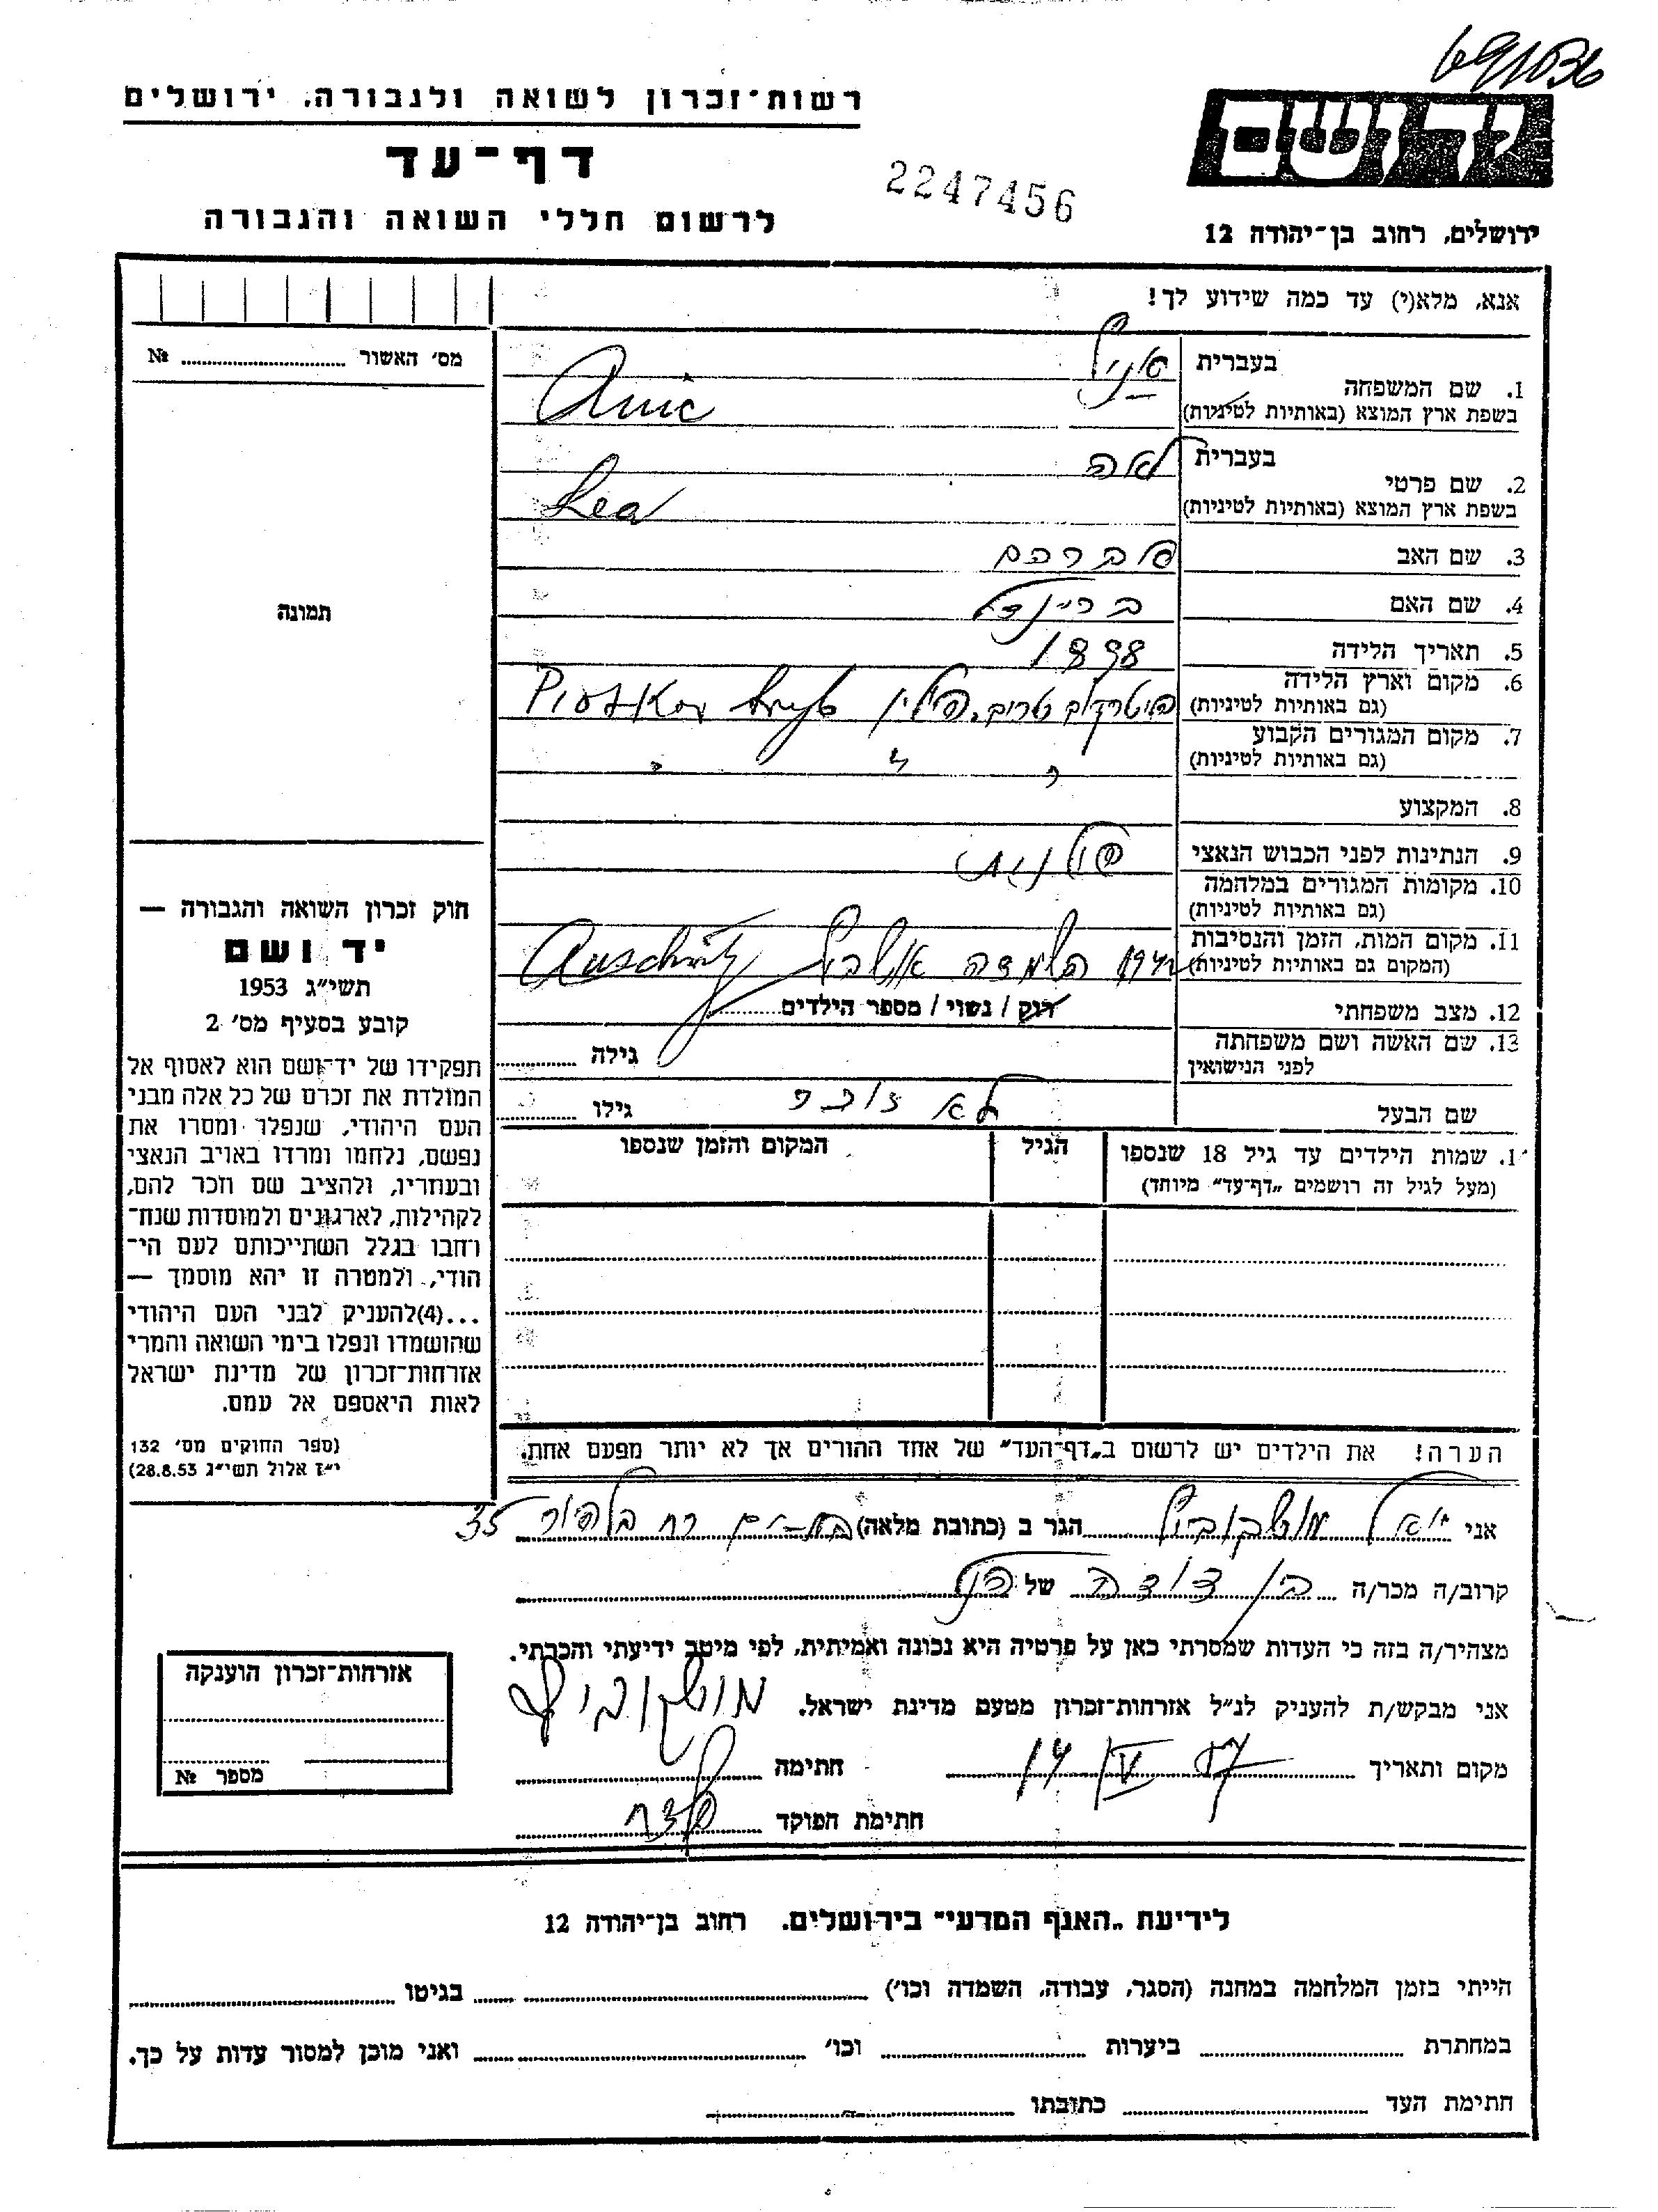 יד ושם
ירושלים, רחוב בן־יהודה 12
רשות־זכרון לשואה ולגבורה, ירושלים
דף־עד
לרשום חללי השואה והגבורה
2247456
אנא, מלא(י) עד כמה שידוע לך!
מס' האשור № 
תמונה
1. שם המשפחה
בעברית
בשפת ארץ המוצא (באותיות לטיניות) Anic
2. שם פרטי
בעברית לאה
בשפת ארץ המוצא (באותיות לטיניות) Lea
3. שם האב אברהם
4. שם האם בריינדל
5. תאריך הלידה 1898
6. מקום וארץ הלידה
(גם באותיות לטיניות) פיוטרקוב טריב. פולין Piotrkow Tryb
7. מקום המגורים הקבוע
(גם באותיות לטיניות) " " "
8. המקצוע
9. הנתינות לפני הכבוש הנאצי פולנית
10. מקומות המגורים במלחמה
(גם באותיות לטיניות)
11. מקום המות, הזמן והנסיבות
(המקום גם באותיות לטיניות) 1942 השמדה Auschwitz
12. מצב משפחתי רווק / נשוי / מספר הילדים
13. שם האשה ושם משפחתה
לפני הנישואין גילה
שם הבעל לא זוכר גילו
1. שמות הילדים עד גיל 18 שנספו
(מעל לגיל זה רושמים „דף־עד" מיוחד)
הגיל
המקום והזמן שנספו
הערה! את הילדים יש לרשום ב„דף־העד" של אחד ההורים אך לא יותר מפעם אחת.
חוק זכרון השואה והגבורה —
יד ושם
תשי"ג 1953
קובע בסעיף מס' 2
תפקידו של יד־ושם הוא לאסוף אל
המולדת את זכרם של כל אלה מבני
העם היהודי, שנפלו ומסרו את
נפשם, נלחמו ומרדו באויב הנאצי
ובעוזריו, ולהציב שם וזכר להם,
לקהילות, לארגונים ולמוסדות שנח־
רחבו בגלל השתייכותם לעם הי־
הודי, ולמטרה זו יהא מוסמך —
...(4)להעניק לבני העם היהודי
שהושמדו ונפלו בימי השואה והמרי
אזרחות־זכרון של מדינת ישראל
לאות היאספם אל עמם.
(ספר החוקים מס' 132
י"ז אלול תשי"ג 28.8.53)
אני הגר ב (כתובת מלאה) 35
קרוב/ה מכר/ה בן דודה של הנ"ל
מצהיר/ה בזה כי העדות שמסרתי כאן על פרטיה היא נכונה ואמיתית, לפי מיטב ידיעתי והכרתי.
אני מבקש/ת להעניק לנ"ל אזרחות־זכרון מטעם מדינת ישראל.
מקום ותאריך 14 IV חתימה
חתימת הפוקד
אזרחות־זכרון הוענקה
מספר №
לידיעת „האגף המדעי" בירושלים. רחוב בן־יהודה 12
הייתי בזמן המלחמה במחנה (הסגר, עבודה, השמדה וכו') בגיטו
במחתרת ביערות וכו' ואני מוכן למסור עדות על כך.
חתימת העד כתובתו